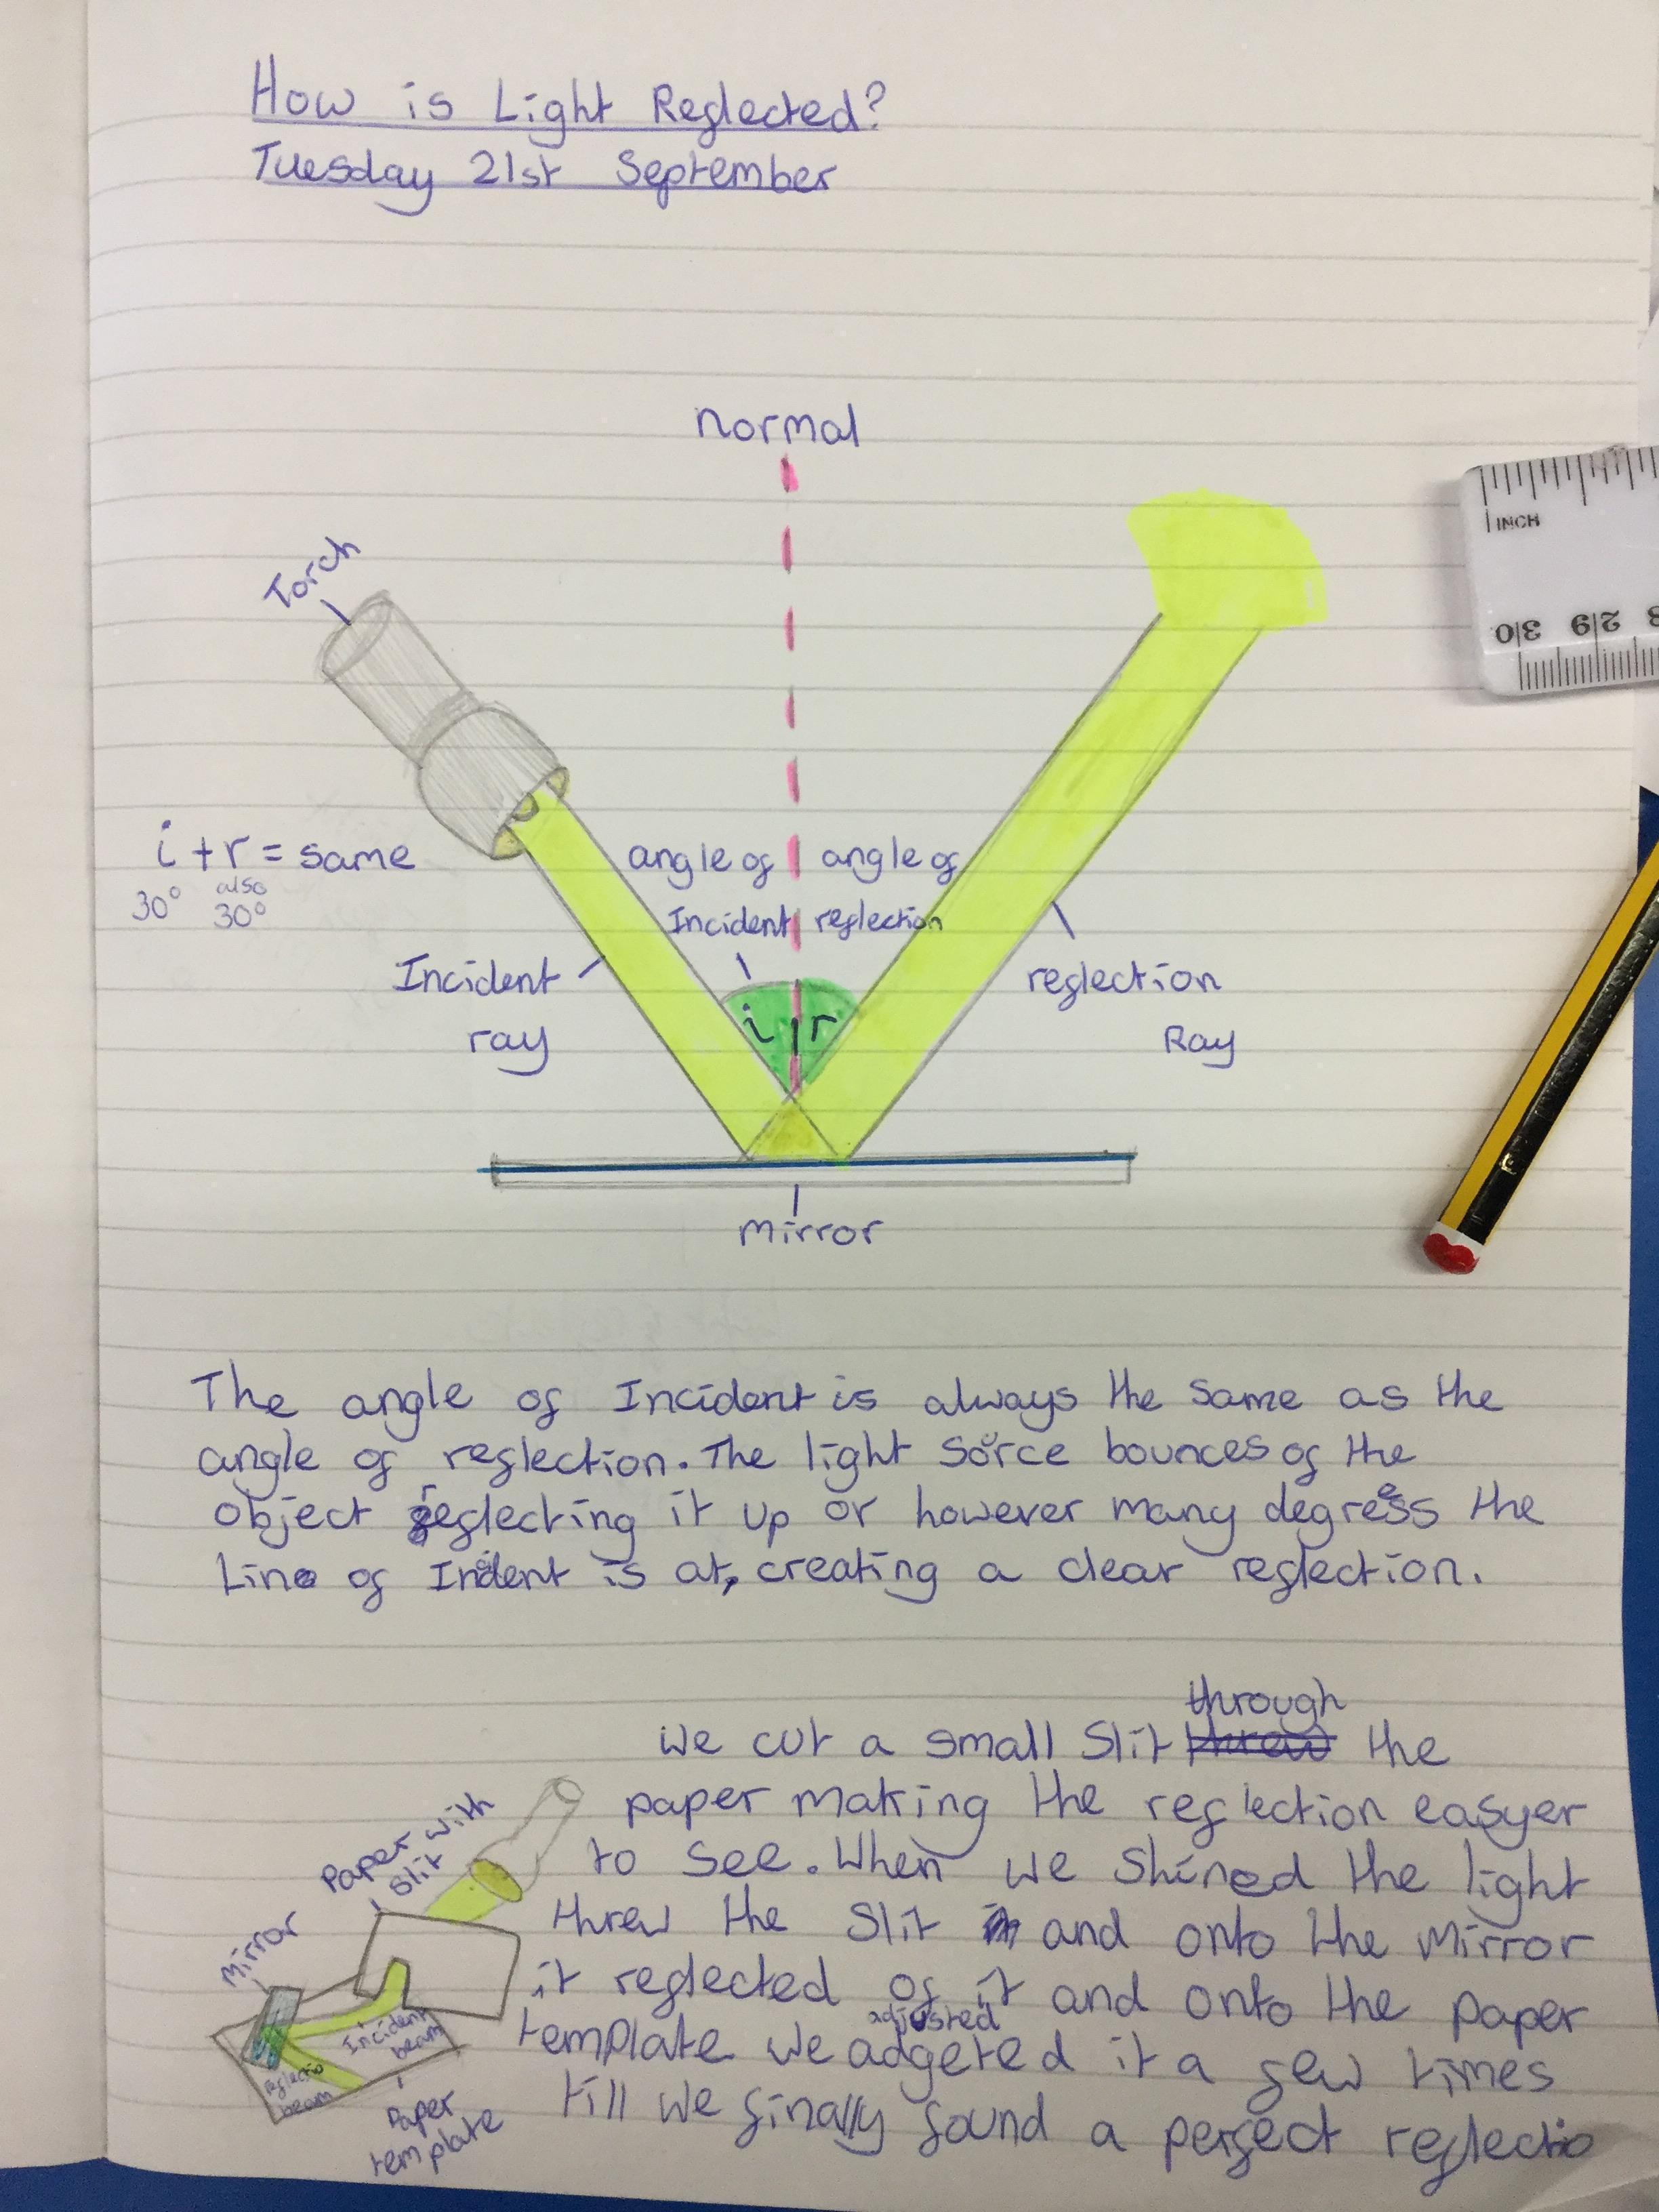 How is Light Reflected?
Tuesday 21st September
normal
Torch
INCH
30 29 8
i + r = same
also
30° 30°
angle of angle of
Incident reflection
Incident
ray
reflection
Ray
i r
mirror
The angle of Incident is always the same as the
angle of reflection. The light sorce bounces of the
object reflecting it up or however many degrees the
Line of Incident is at, creating a clear reflection.
through
We cut a small Slit threw the
paper making the reflection easyer
to see. When we shined the light
threw the slit and onto the mirror
it reflected of it and onto the paper
adjusted
template we adgeted it a few times
till we finally found a perfect reflectio
Paper with
slit
mirror
Incident
beam
reflectio
beam
Paper
template